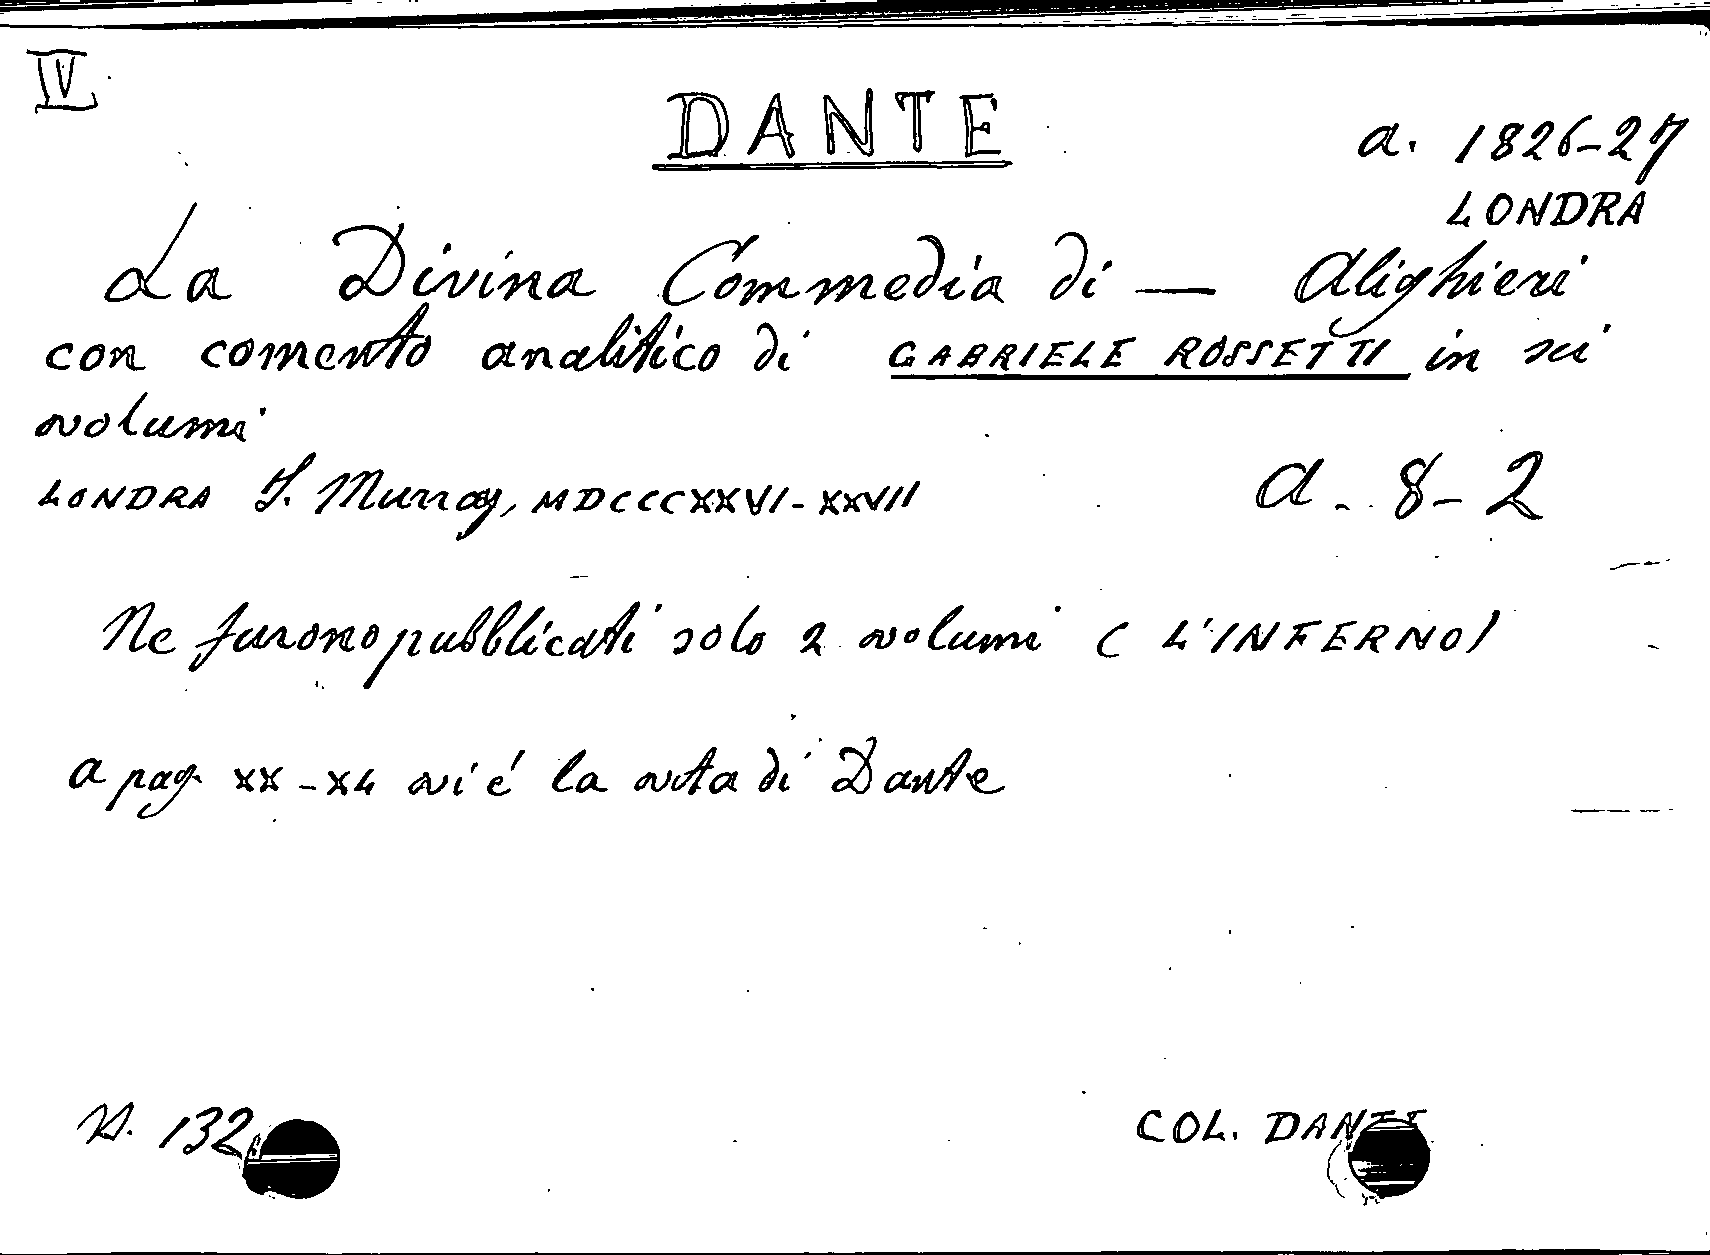 IV
DANTE
a. 1826-27
LONDRA
La Divina Commedia di — Alighieri
con comento analitico di GABRIELE ROSSETTI in sei
volumi
LONDRA J. Murray, MDCCCXXVI-XXVII
a. 8-2
Ne furono pubblicati solo 2 volumi (L'INFERNO)
a pag. XX-XL vi é la vita di Dante
N. 132
COL. DANTE